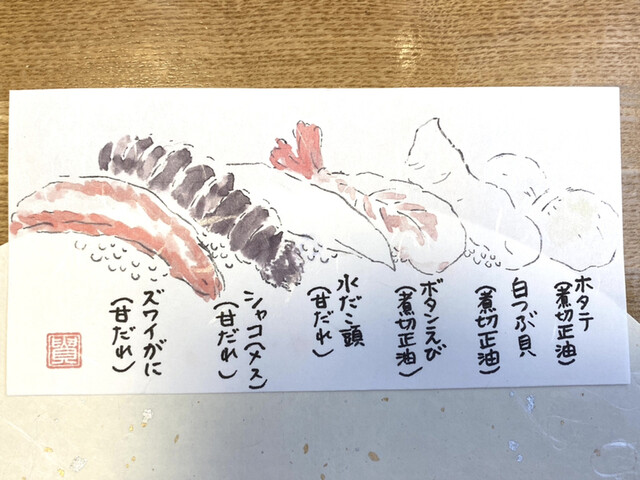 ホタテ
(煮切正油)
白つぶ貝
(煮切正油)
ボタンえび
(煮切正油)
水だこ頭
(甘だれ)
シャコ(メス)
(甘だれ)
ズワイがに
(甘だれ)